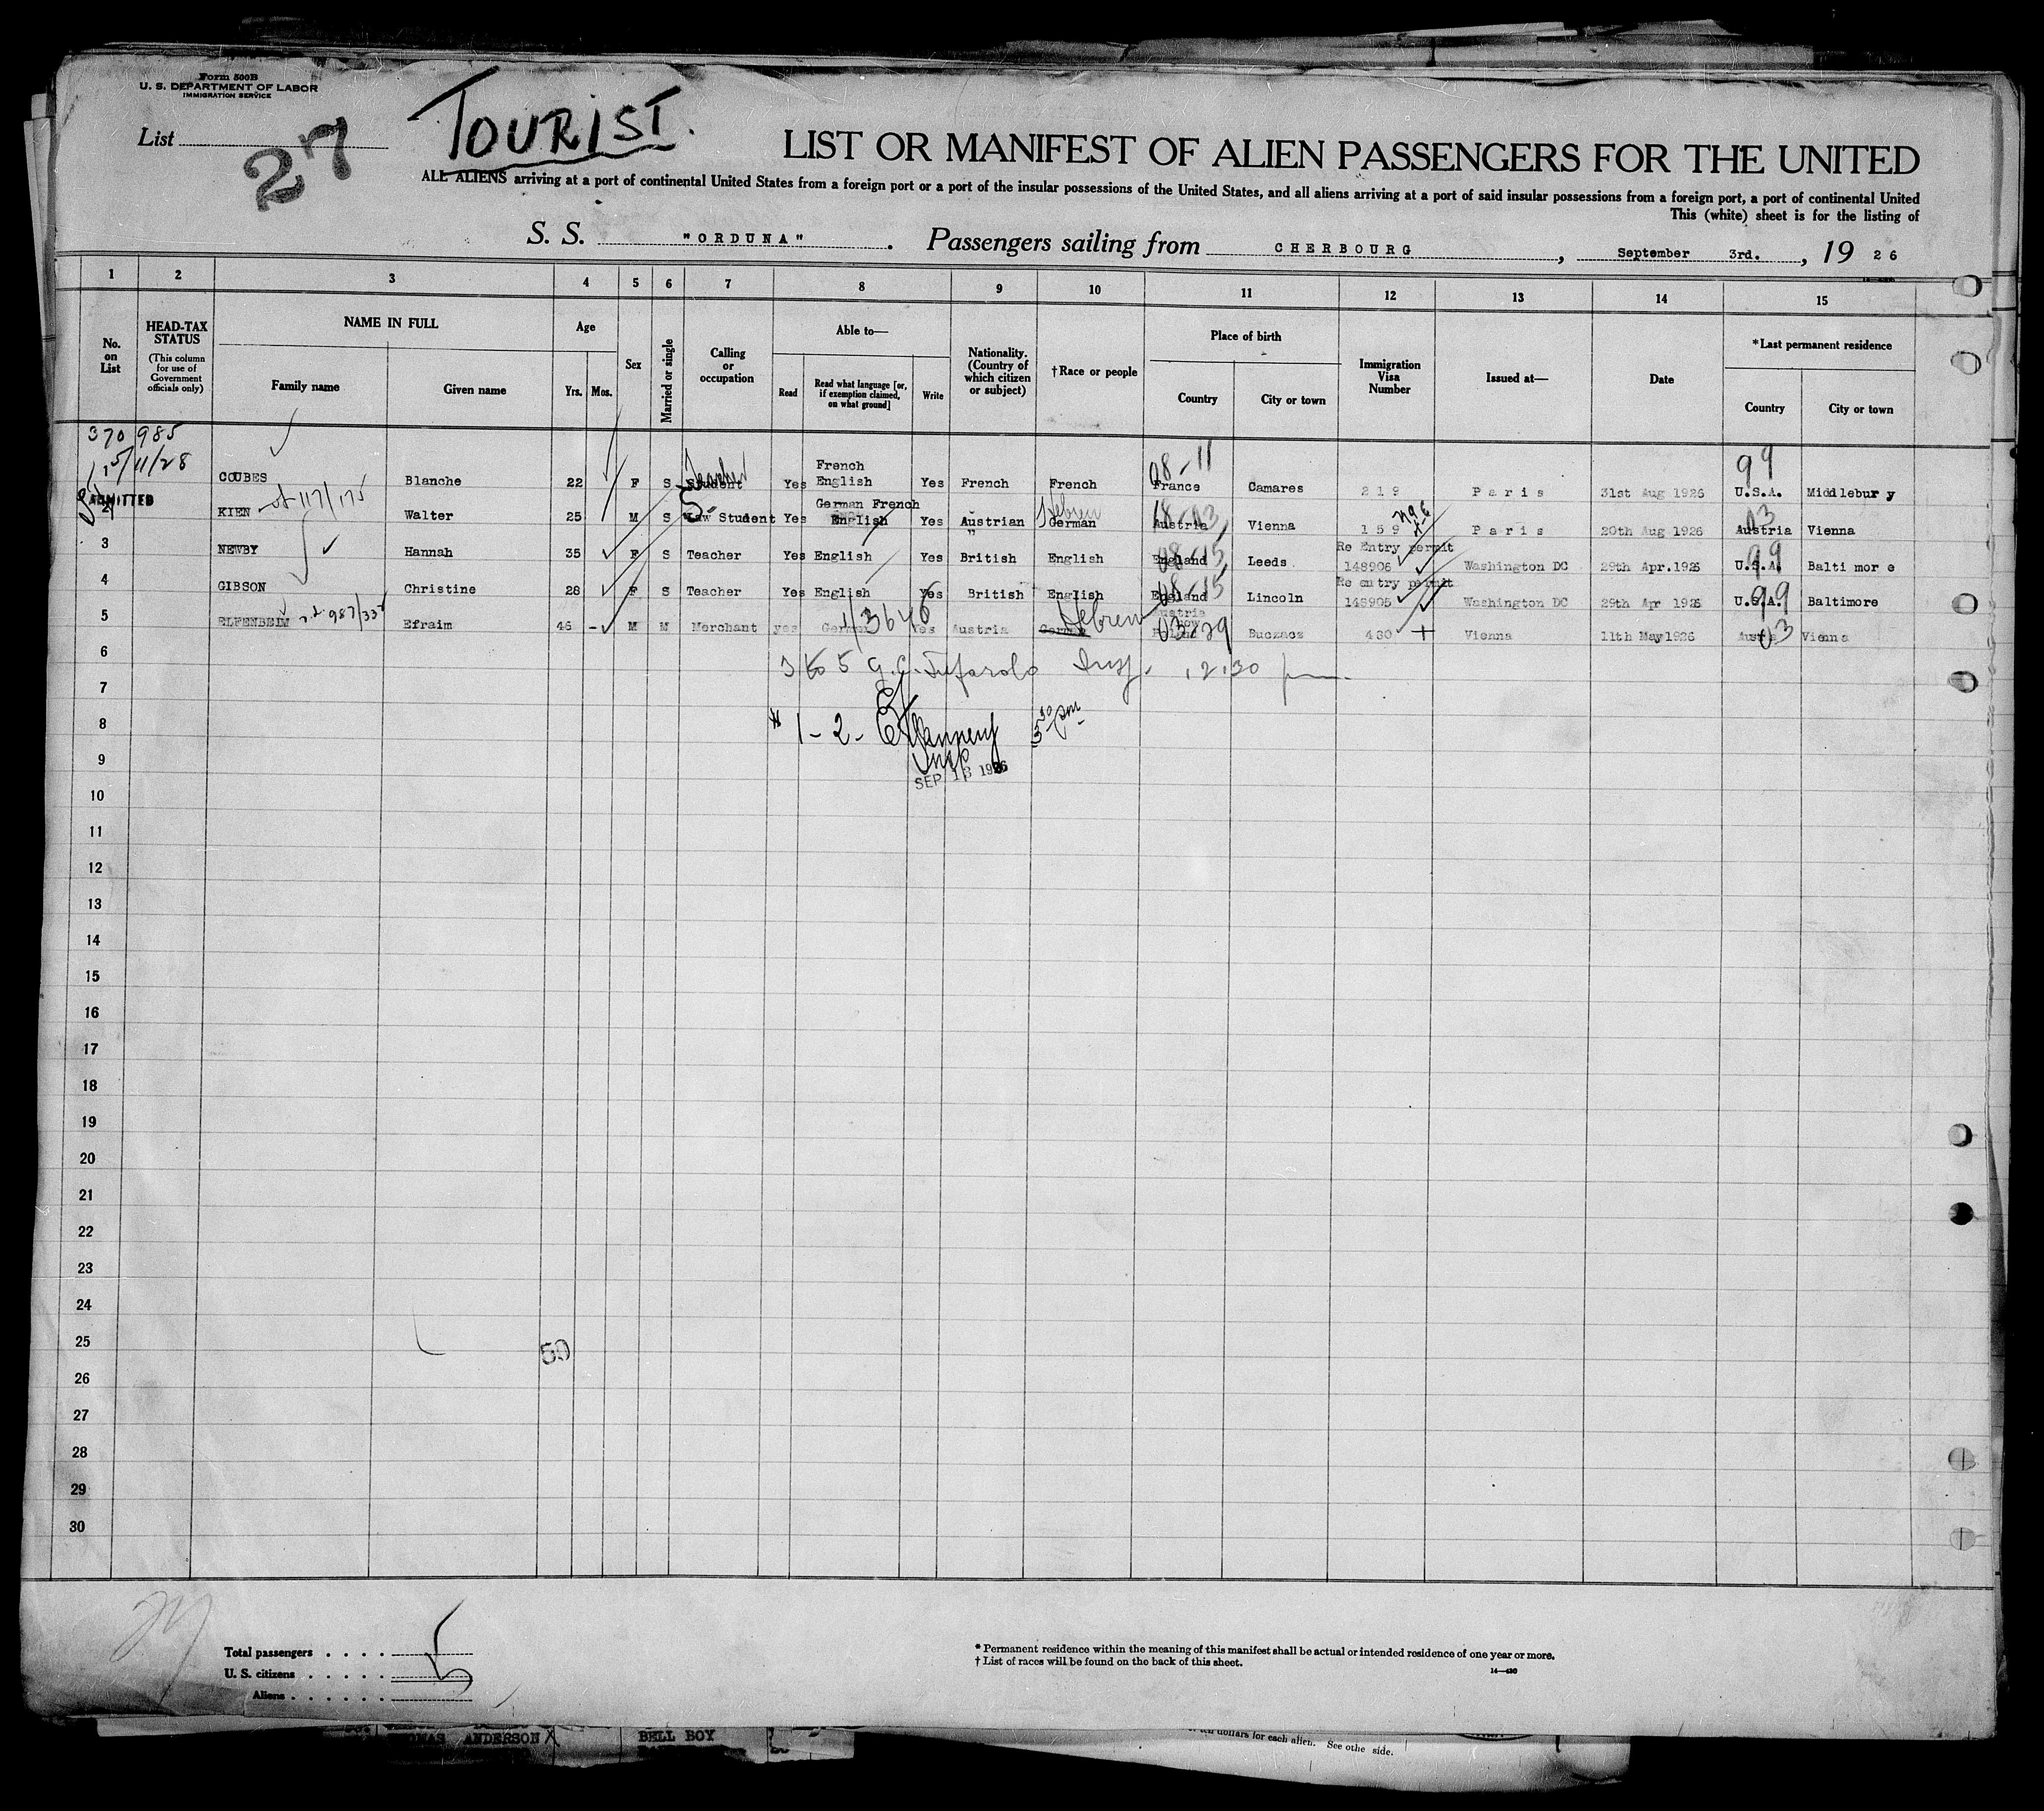 Form 500B
U. S. DEPARTMENT OF LABOR
IMMIGRATION SERVICE
List
27
TOURIST.
LIST OR MANIFEST OF ALIEN PASSENGERS FOR THE UNITED
ALL ALIENS arriving at a port of continental United States from a foreign port or a port of the insular possessions of the United States, and all aliens arriving at a port of said insular possessions from a foreign port, a port of continental United
This (white) sheet is for the listing of
S. S. "ORDUNA". Passengers sailing from CHERBOURG, September 3rd., 1926
1 2 3 4 5 6 7 8 9 10 11 12 13 14 15
No. on List
HEAD-TAX STATUS
(This column for use of Government officials only)
NAME IN FULL
Family name
Given name
Age
Yrs.
Mos.
Sex
Married or single
Calling or occupation
Able to—
Read
Read what language [or, if exemption claimed, on what ground]
Write
Nationality. (Country of which citizen or subject)
†Race or people
Place of birth
Country
City or town
Immigration Visa Number
Issued at—
Date
*Last permanent residence
Country
City or town
370 985
11/28
COUBES Blanche 22 F S Student Teacher Yes French English Yes French French 08-11 France Camares 219 Paris 31st Aug 1926 99 U.S.A. Middlebury
ADMITTED
2 KIEN 117/175 Walter 25 M S Law Student Yes German French English Yes Austrian German Hebrew Austria Vienna 159 Paris 20th Aug 1926 03 Austria Vienna
3 NEWBY Hannah 35 F S Teacher Yes English Yes British English 08-15 England Leeds Re Entry permit 148906 Washington DC 29th Apr.1926 99 U.S.A. Baltimore
4 GIBSON Christine 28 F S Teacher Yes English Yes British English 08-15 England Lincoln Re entry permit 148905 Washington DC 29th Apr 1926 99 U.S.A. Baltimore
5 ELFENBEIM 987/33 Efraim 46 - M M Merchant yes German Yes Austria German Hebrew Austria now Poland 03/29 Buczacz 430 Vienna 11th May 1926 Austria 03 Vienna
6 3 to 5 Insp. 12.30 pm
7
8 1-2-
Insp
9 SEP 13 1926
10
11
12
13
14
15
16
17
18
19
20
21
22
23
24
25 50
26
27
28
29
30
Total passengers . . . . 5
U. S. citizens . . . . .
Aliens . . . . . . 5
* Permanent residence within the meaning of this manifest shall be actual or intended residence of one year or more.
† List of races will be found on the back of this sheet.
14—430
ANDERSON X BELL BOY
dollars for each alien. See othe side.